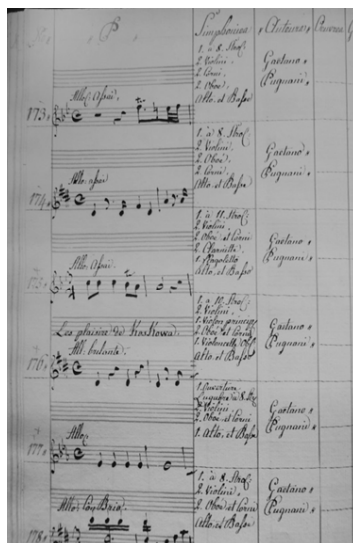 P
Simphonies
Auteurs
173.
Allo. Assai.
1. à 8. Strom:
2. Violini.
2. Corni.
2. Oboe.
Alto et Basso
Gaetano
Pugnani.
174.
Allo. assai
1. à 8. Strom:
2. Violini.
2. Oboe.
2. Corni
Alto. et Basso
Gaetano
Pugnani.
175.
Allo. Assai.
1. à 11. Strom:
2. Violini.
2. Oboe et Corni
2. Clarinetti
1. Fagotto
Alto. et Basso
Gaetano
Pugnani.
176.
Les plaisirs de
All. brillante.
1. à 10. Strom:
2. Violini.
2. Oboe et Corni
Alto et Basso
Gaetano
Pugnani.
177.
Allo.
1. Ouverture
à 8. Str:
2. Violini.
2. Oboe. et Corni
1. Alto. et Basso
Gaetano
Pugnani.
178.
Allo. Con Brio.
1. à 8. Strom:
2. Violini.
2. Oboe et Corni
Alto et Basso
Gaetano
Pugnani.